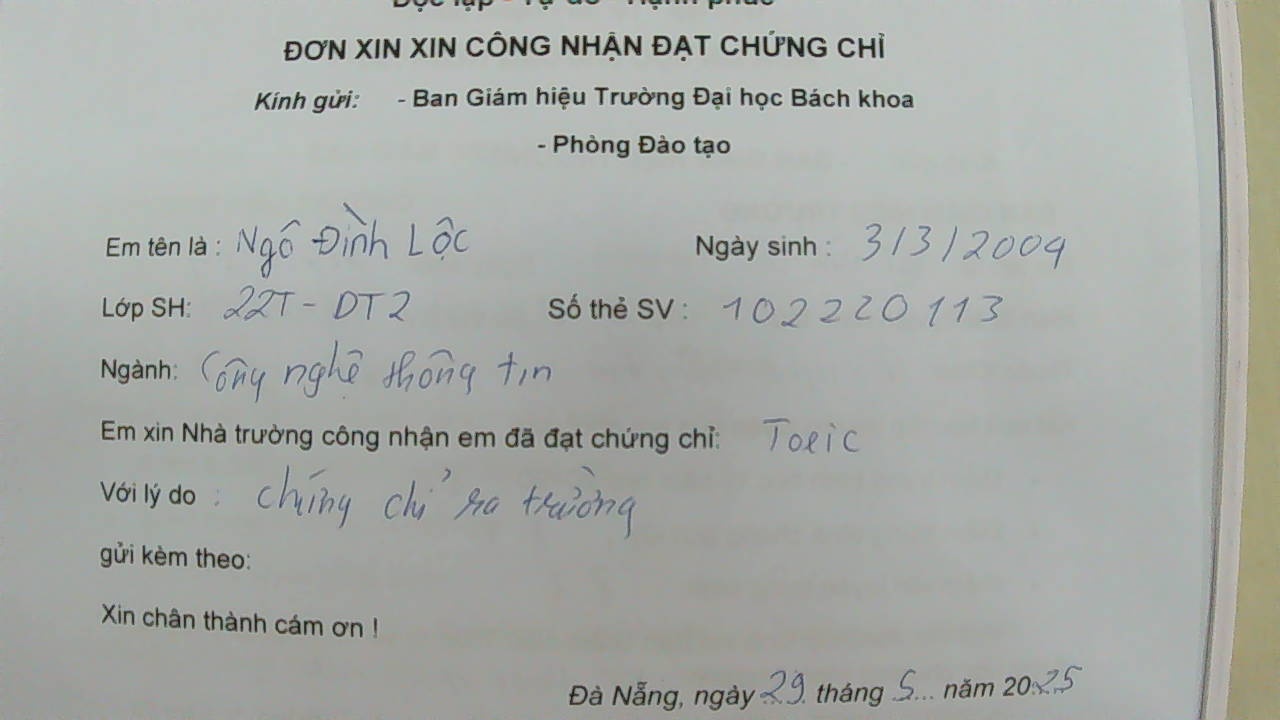 Độc lập - Tự do - Hạnh phúc
ĐƠN XIN XIN CÔNG NHẬN ĐẠT CHỨNG CHỈ
Kính gửi: - Ban Giám hiệu Trường Đại học Bách khoa
- Phòng Đào tạo
Em tên là : Ngô Đình Lộc Ngày sinh : 3/3/2004
Lớp SH: 22T - DT2 Số thẻ SV : 102220113
Ngành: Công nghệ thông tin
Em xin Nhà trường công nhận em đã đạt chứng chỉ: Toeic
Với lý do : chứng chỉ ra trường
gửi kèm theo:
Xin chân thành cám ơn !
Đà Nẵng, ngày 29 tháng 5... năm 2025